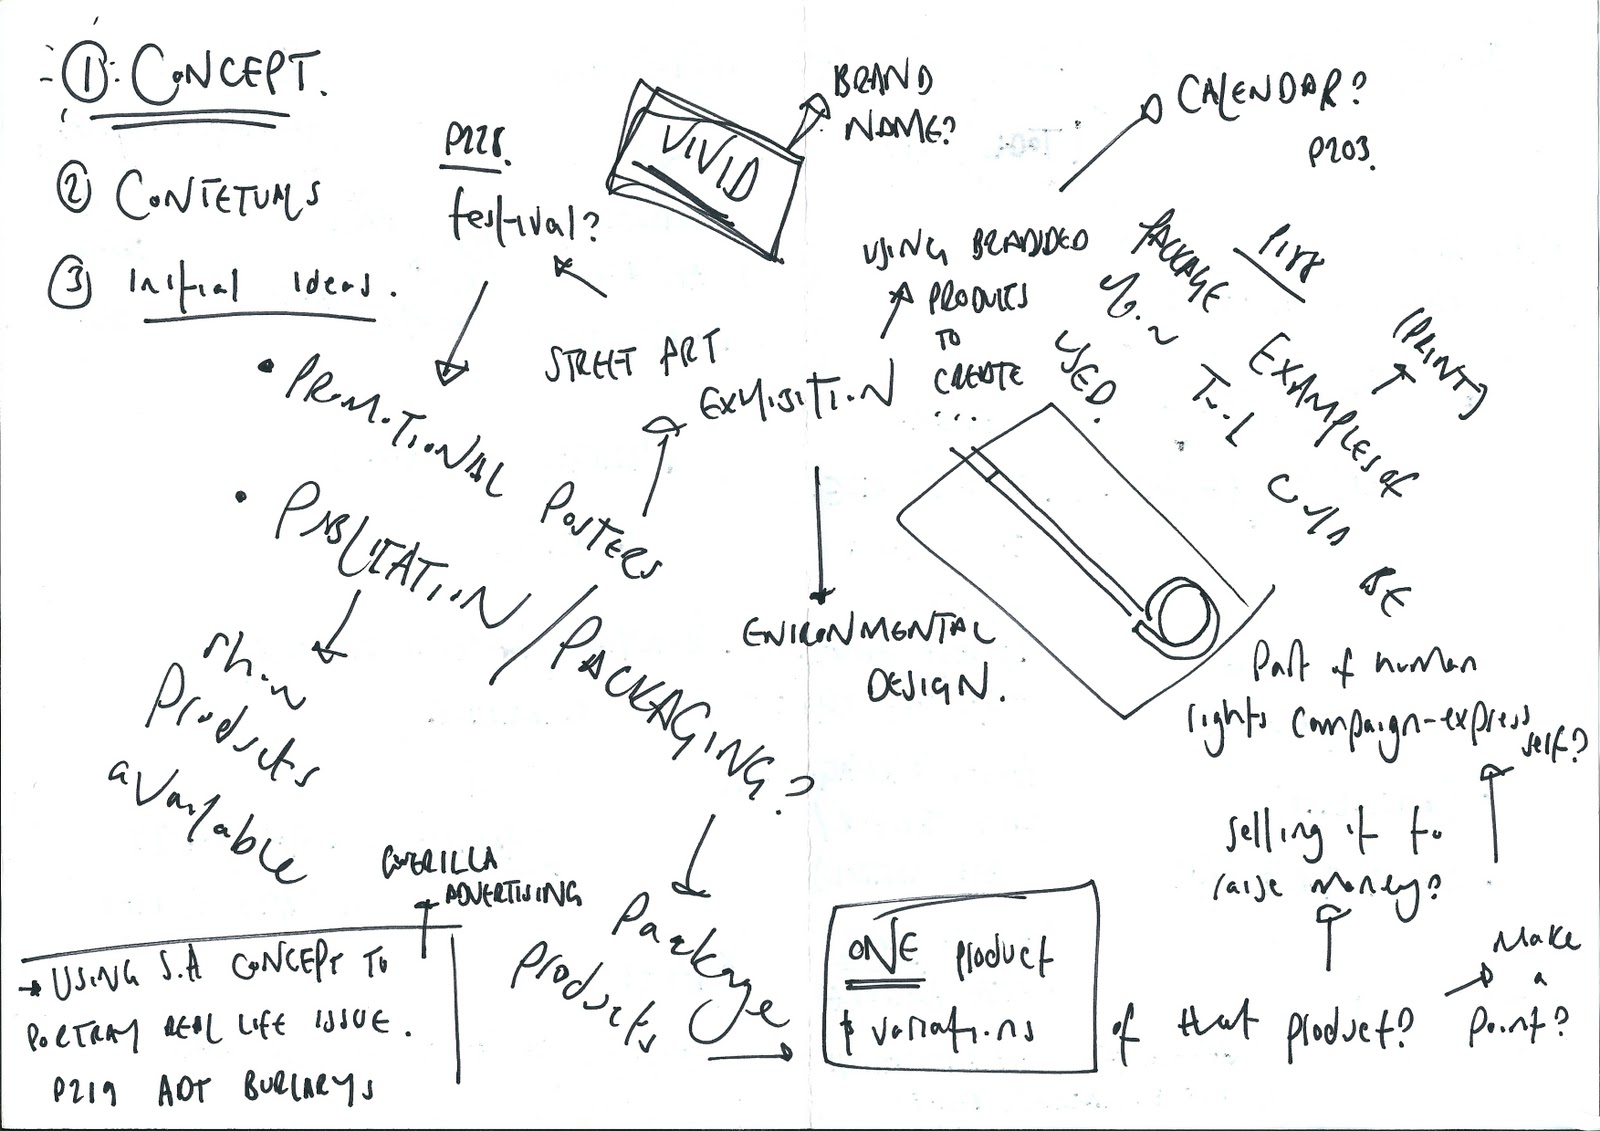 ① CONCEPT.
② CONTETUALS
③ Initial Ideas.
P228.
festival?
VIVID
BRAND
NAME?
CALENDAR?
P203.
USING BRANDED
PRODUCTS
TO
CREATE
...
PACKAGE
USED.
EXAMPLES OF
TOOL
COULD
BE
(PRINTS)
STREET ART
EXHIBITION
• PROMOTIONAL
POSTERS
• PUBLICATION / PACKAGING?
ENIRONMENTAL
DESIGN.
Show
Products
available
Part of human
rights campaign-express
self?
selling it to
raise money?
Make
a
point?
GUERILLA
ADVERTISING
→ USING S.A CONCEPT TO
PORTRAY REAL LIFE ISSUE.
P219 ADT BURLARYS
Package
Products
ONE product
& variations
of that product?